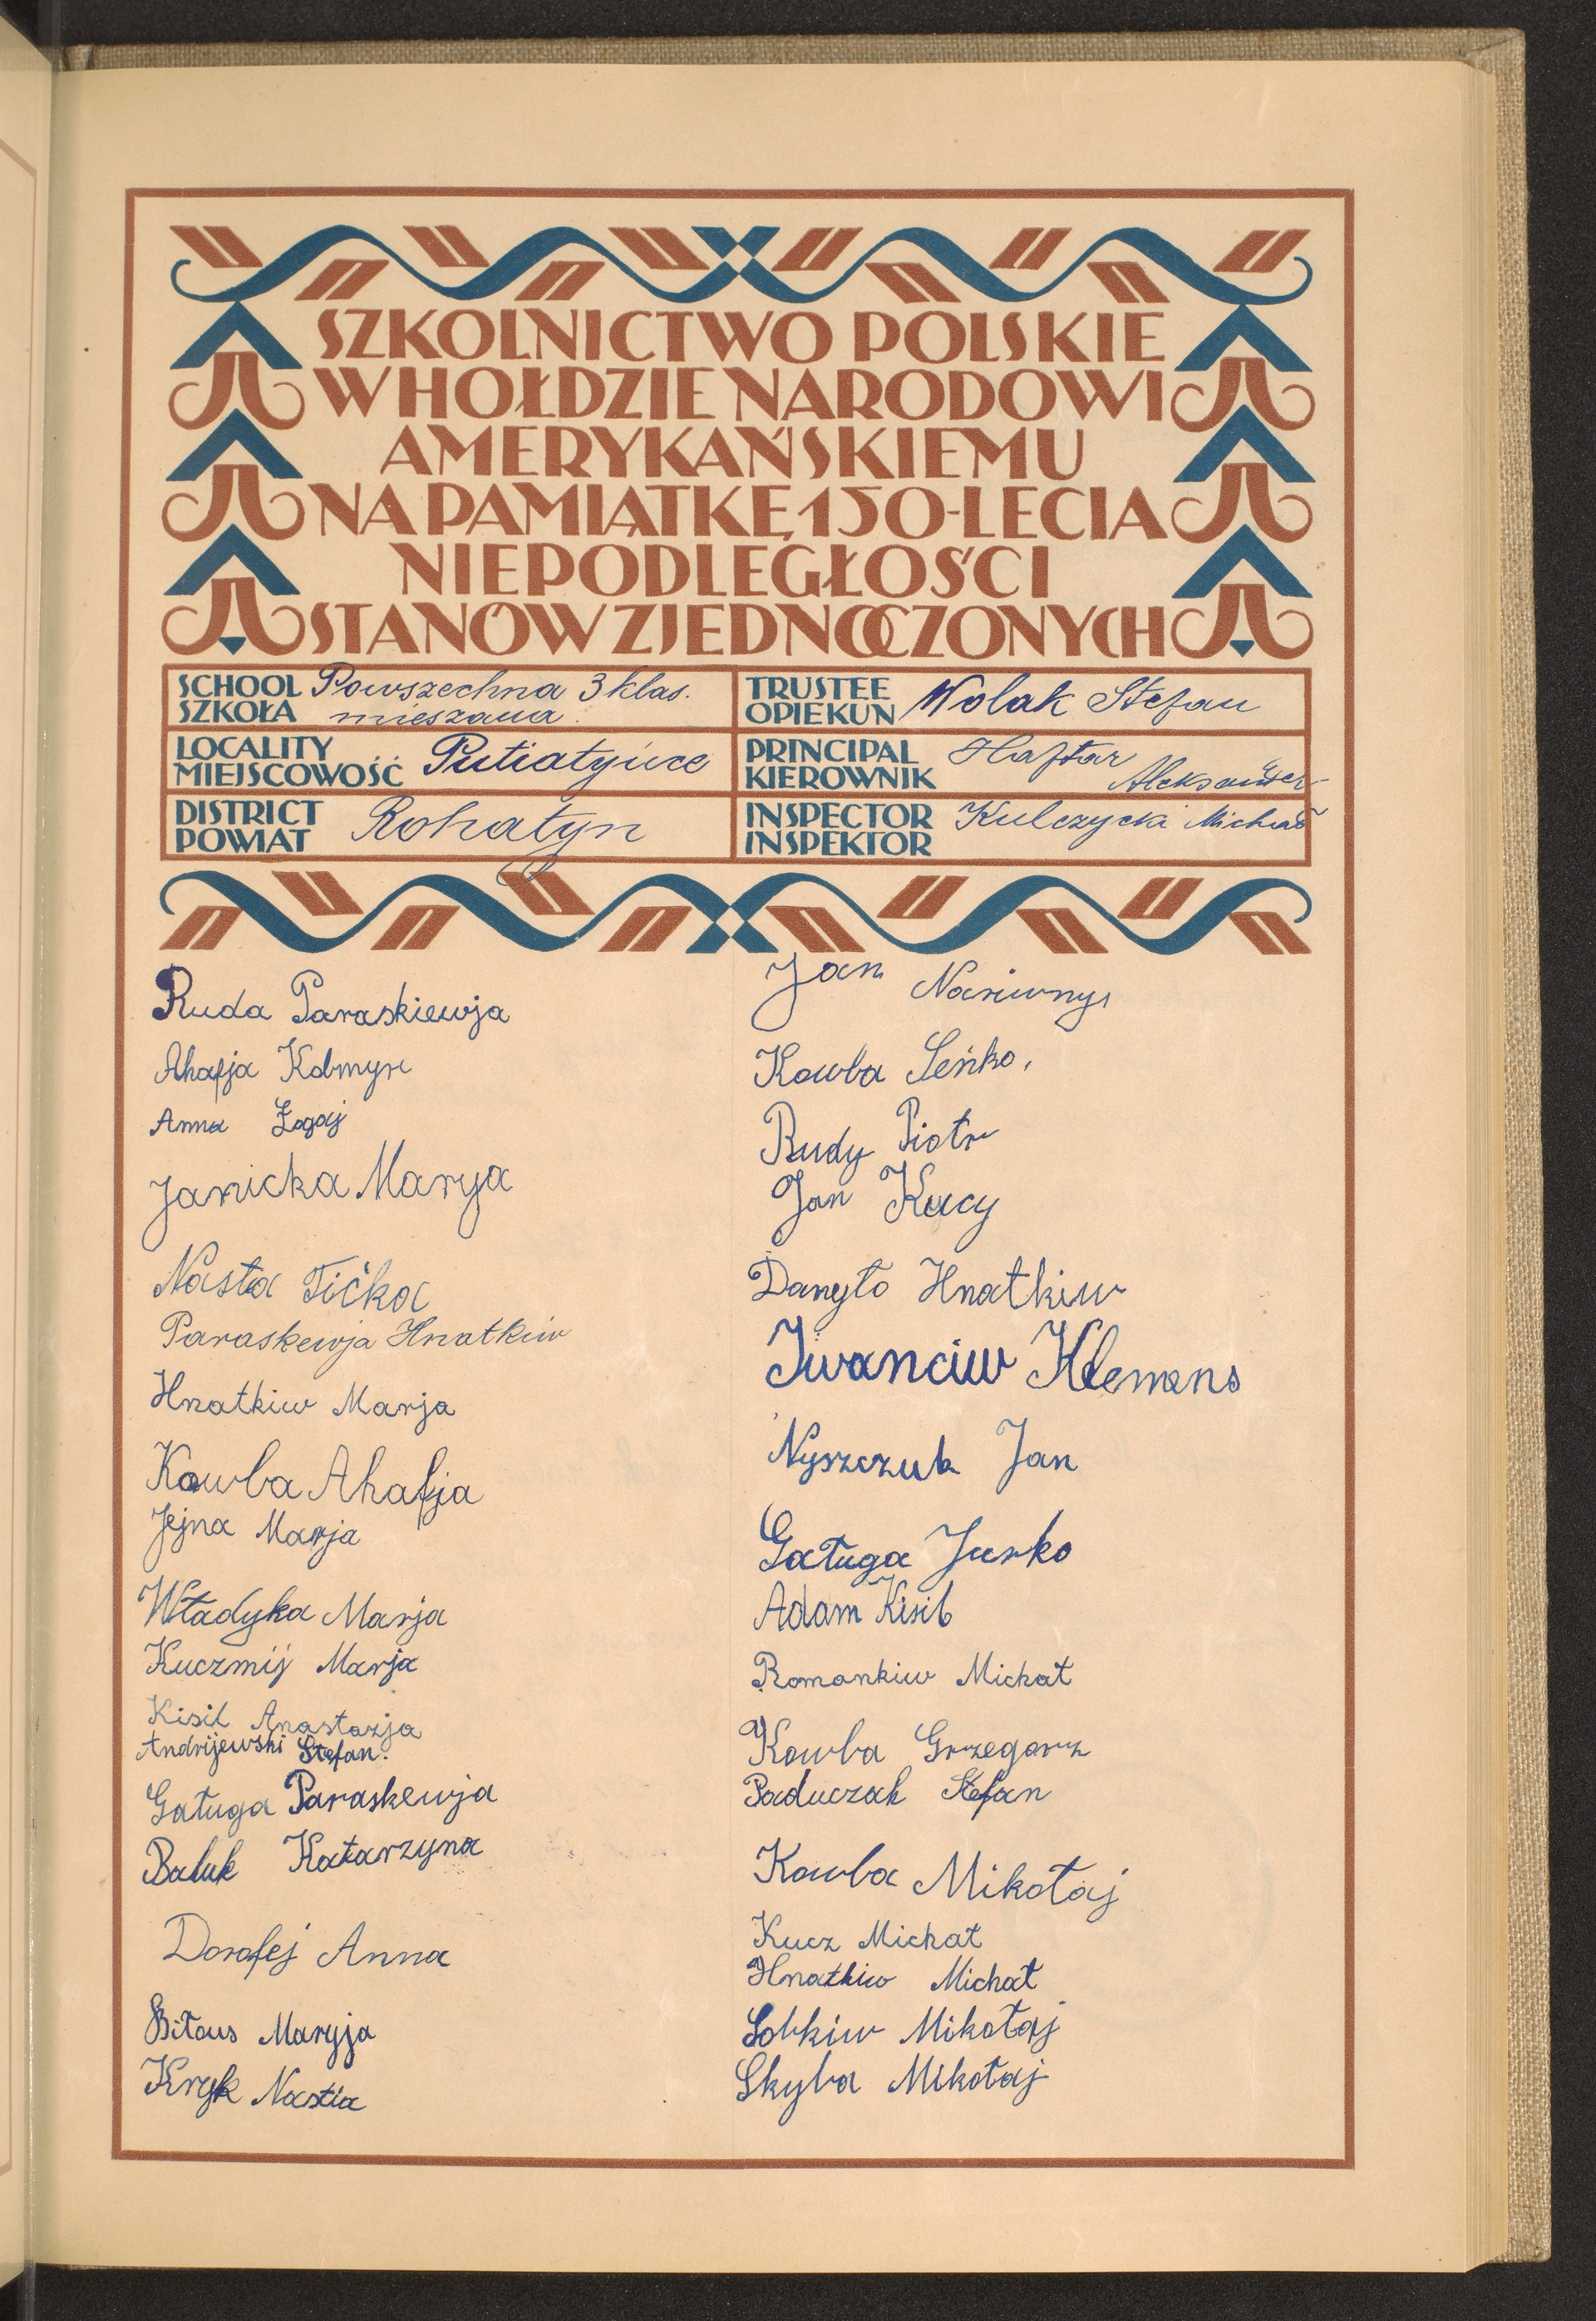 SZKOLNICTWO POLSKIE
W HOŁDZIE NARODOWI
AMERYKAŃSKIEMU
NA PAMIĄTKĘ 150-LECIA
NIEPODLEGŁOŚCI
STANÓW ZJEDNOCZONYCH
SCHOOL SZKOŁA Powszechna 3 klas. mieszana.
TRUSTEE OPIEKUN Wolak Stefan
LOCALITY MIEJSCOWOŚĆ Putiatyńce
PRINCIPAL KIEROWNIK Haftar Aleksander
DISTRICT POWIAT Rohatyn
INSPECTOR INSPEKTOR Kulczycki Michał
Ruda Paraskiewja
Ahafja Kobmyr
Anna Łogaj
Janicka Marya
Nasta Tićka
Paraskewja Hnatkiw
Hnatkiw Marja
Kawba Ahafja
Jejna Marja
Władyka Marja
Kuczmij Marja
Kisil Anastazja
Andrijewski Stefan.
Gaługa Paraskewja
Baluk Katarzyna
Dorofej Anna
Biłous Maryja
Kryk Nastia
Jan Nariwnyj
Kowba Seńko,
Rudy Piotr
Jan Kucy
Danyło Hnatkiw
Iwanciw Klemens
Nyszczuk Jan
Gaługa Jurko
Adam Kisil
Romankiw Michał
Kowba Grzegorz
Paduczak Stefan
Kowba Mikołaj
Kucz Michał
Hnatkiw Michał
Sobkiw Mikołaj
Skyba Mikołaj